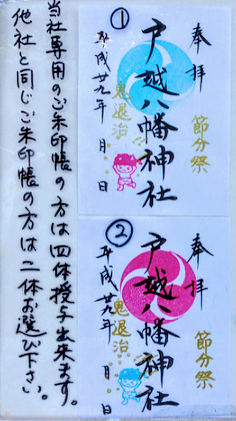 ①
奉拝
節分祭
戸越八幡神社
鬼退治
平成廿九年 月 日
②
奉拝
節分祭
戸越八幡神社
鬼退治
平成廿九年 月 日
当社専用のご朱印帳の方は四体授与出来ます。
他社と同じご朱印帳の方は二体お選び下さい。